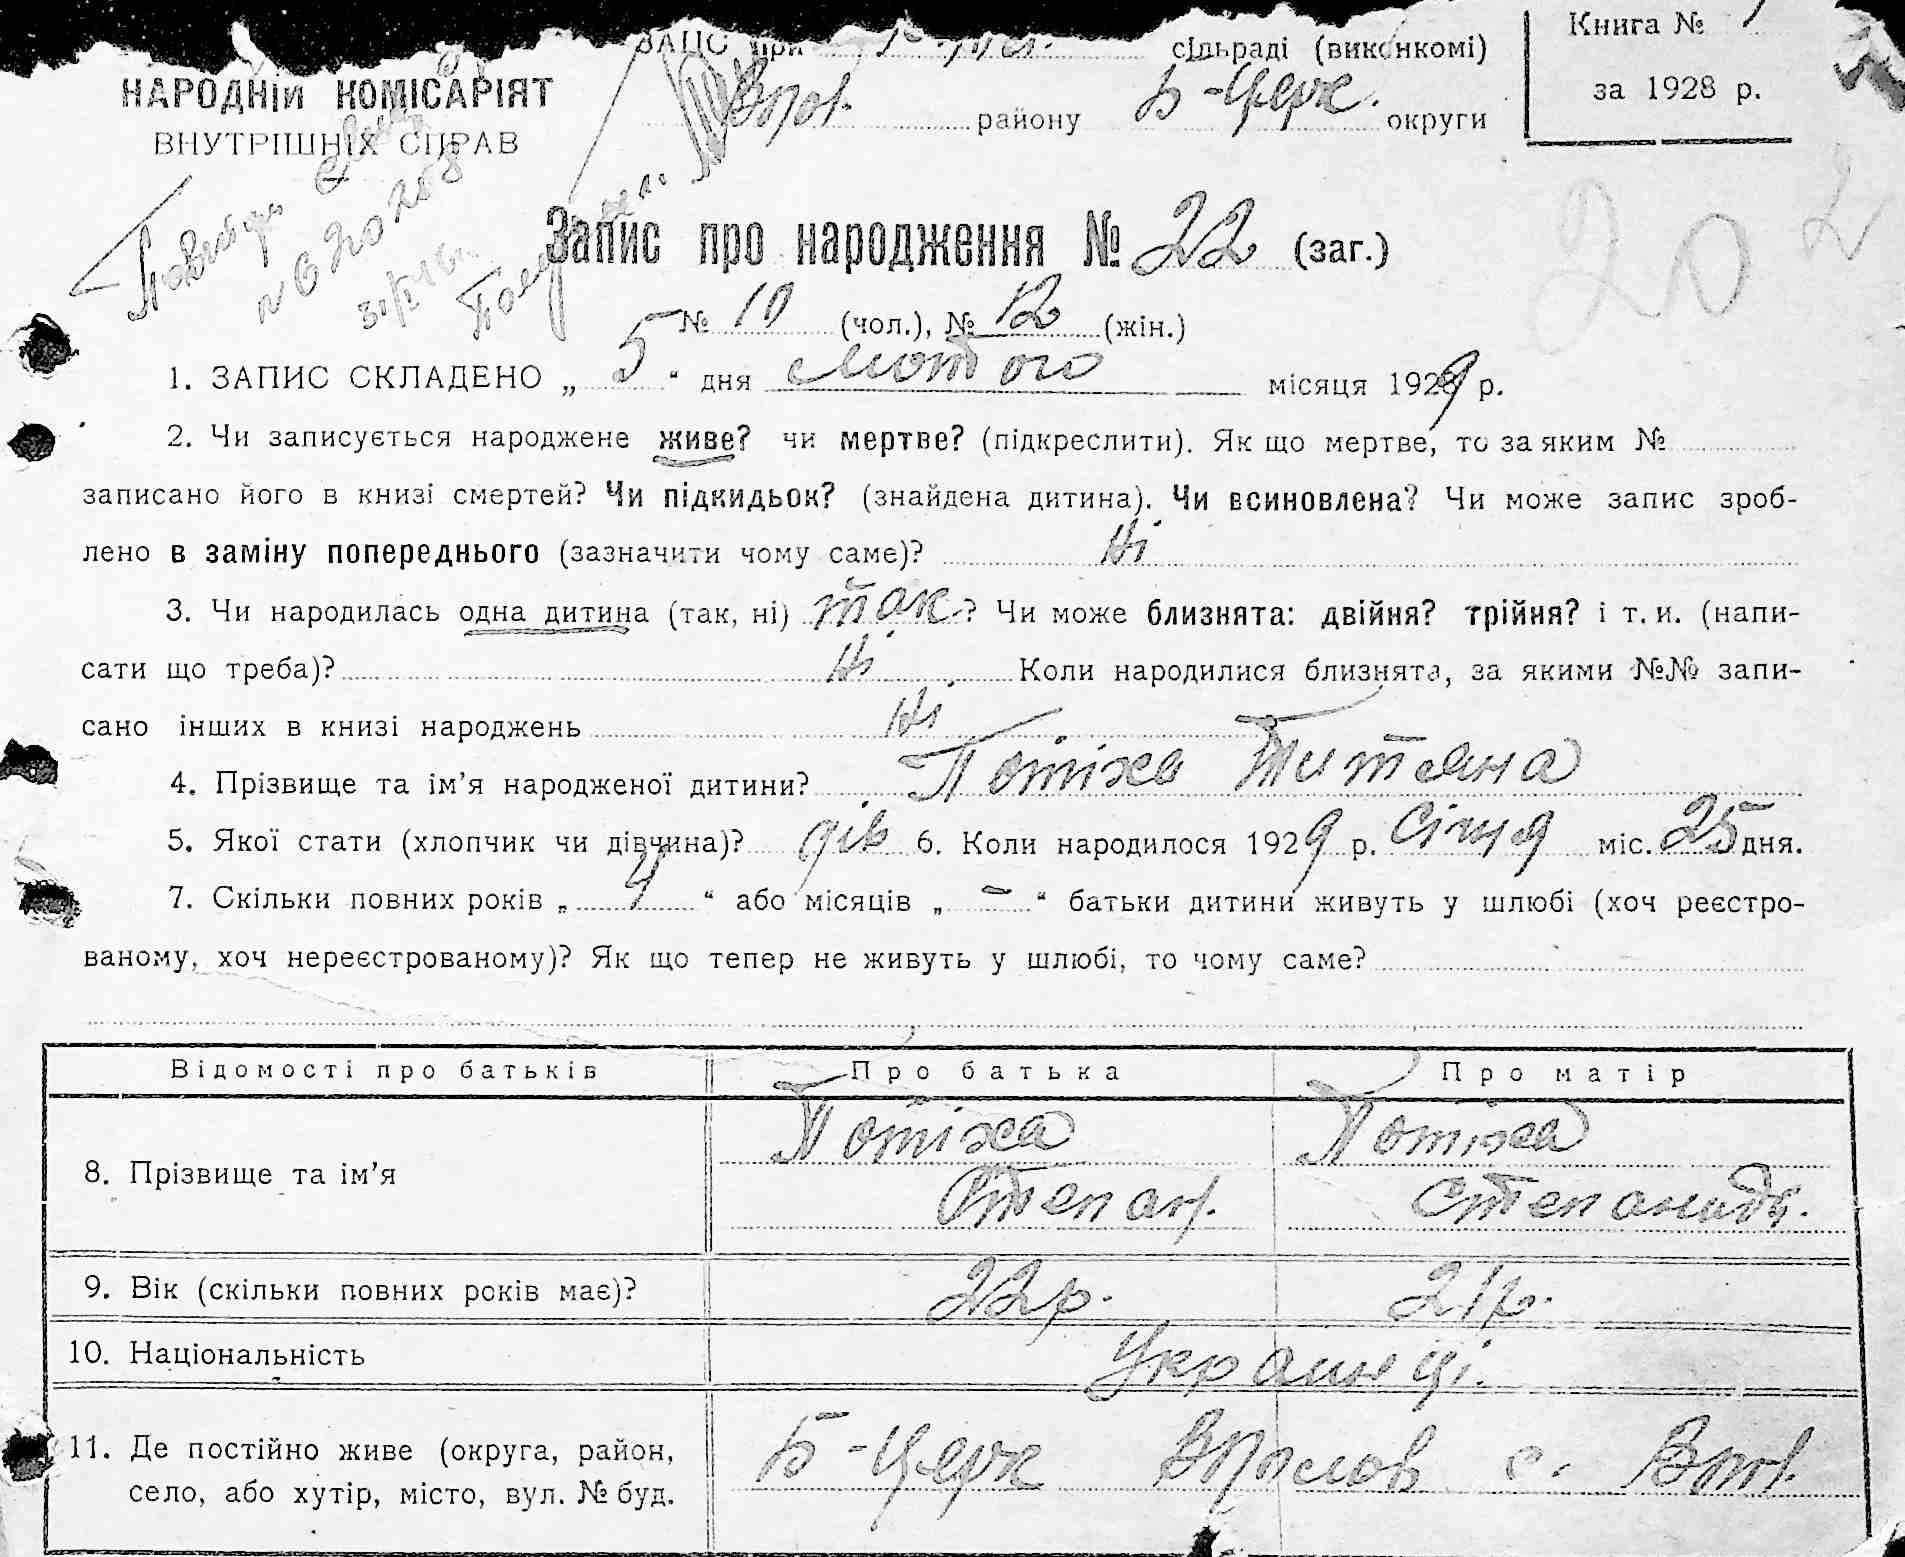 ЗАПС при сільраді (виконкомі)
Книга №
НАРОДНІЙ КОМІСАРІЯТ
ВНУТРІШНІХ СПРАВ
району Б-Церк. округи
за 1928 р.
Запис про народження № 22 (заг.)
202
№ 10 (чол.), № 12 (жін.)
1. ЗАПИС СКЛАДЕНО „ 5 “ дня лютого місяця 1929 р.
2. Чи записується народжене живе? чи мертве? (підкреслити). Як що мертве, то за яким №
записано його в книзі смертей? Чи підкидьок? (знайдена дитина). Чи всиновлена? Чи може запис зроб-
лено в заміну попереднього (зазначити чому саме)? Ні
3. Чи народилась одна дитина (так, ні) так ? Чи може близнята: двійня? трійня? і т. и. (напи-
сати що треба)? Ні Коли народилися близнята, за якими №№ запи-
сано інших в книзі народжень Ні
4. Прізвище та ім’я народженої дитини? Потіха Титяна
5. Якої стати (хлопчик чи дівчина)? дів 6. Коли народилося 1929 р. Січня міс. 25 дня.
7. Скільки повних років „ 4 “ або місяців „ – “ батьки дитини живуть у шлюбі (хоч реєстро-
ваному, хоч нереєстрованому)? Як що тепер не живуть у шлюбі, то чому саме?
Відомості про батьків Про батька Про матір
8. Прізвище та ім’я Потіха Степан. Потіха Степанида.
9. Вік (скільки повних років має)? 22 р. 21 р.
10. Національність Українці.
11. Де постійно живе (округа, район, Б-Церк с.
село, або хутір, місто, вул. № буд.